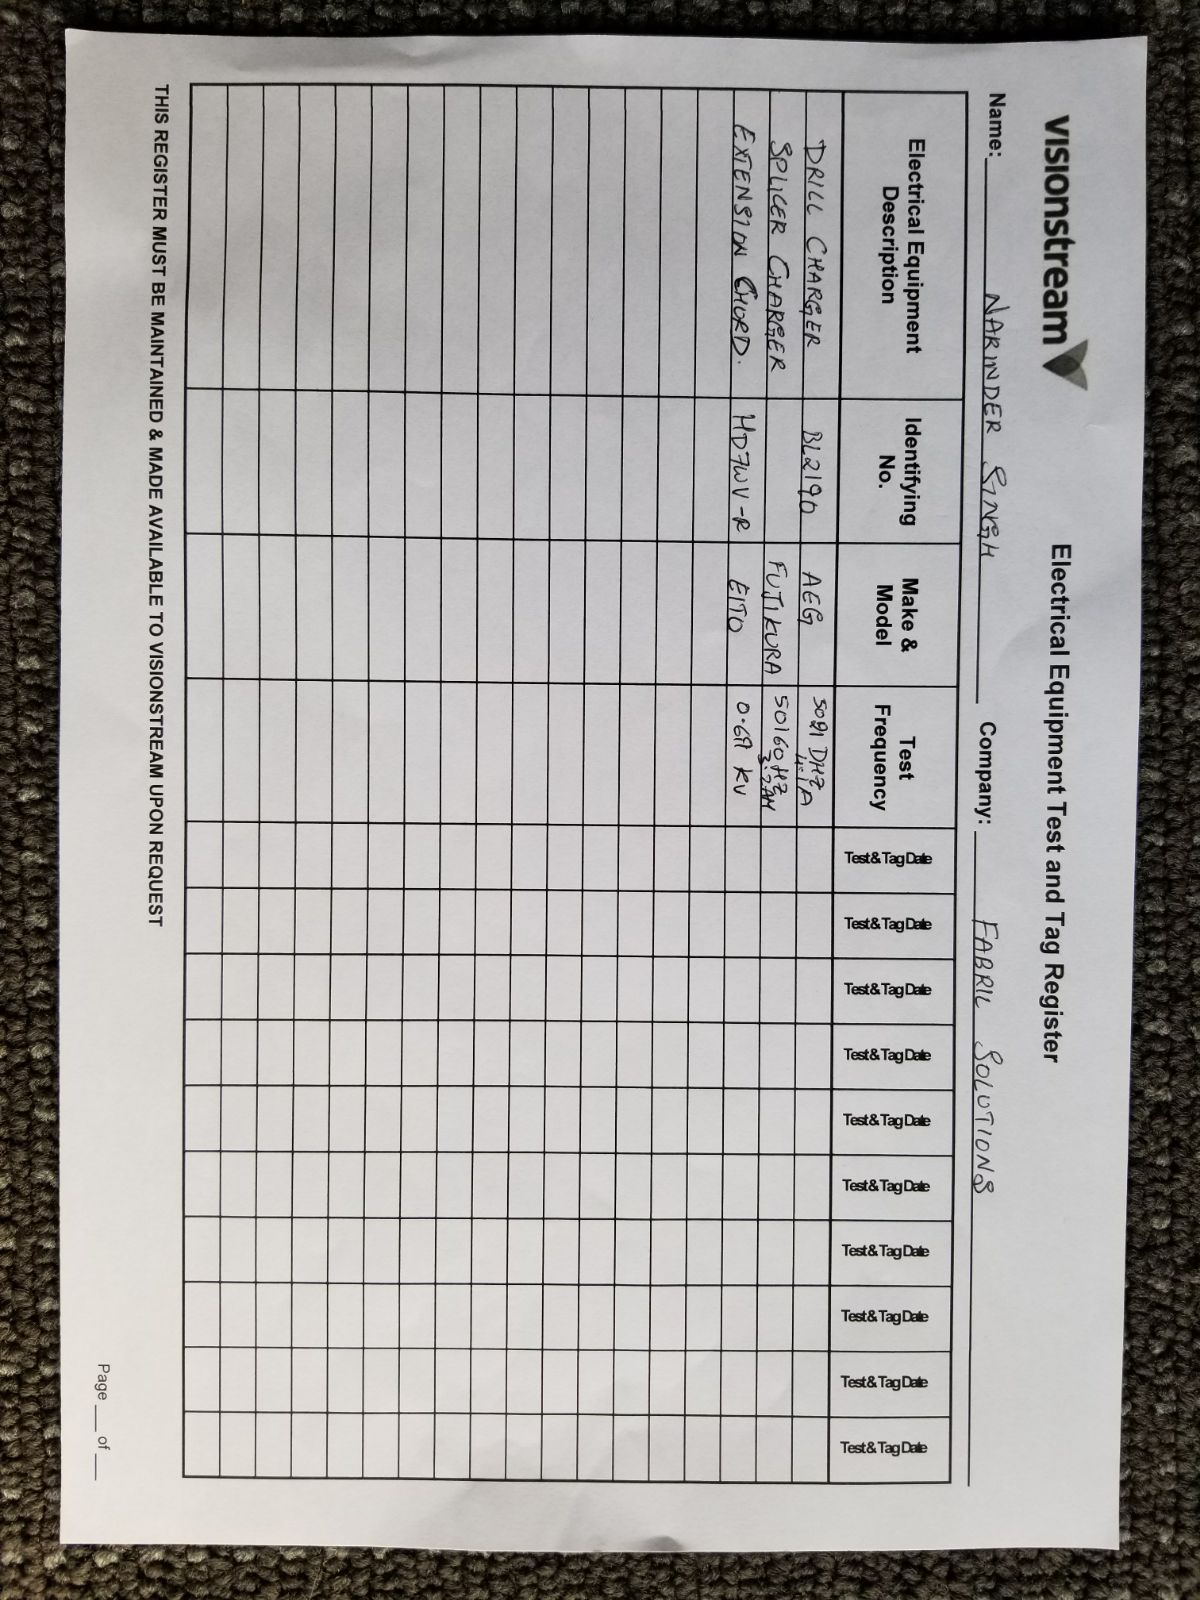 visionstream
Electrical Equipment Test and Tag Register
Name: NARINDER SINGH Company: FABRIL SOLUTIONS
Electrical Equipment Description Identifying No. Make & Model Test Frequency Test & Tag Date Test & Tag Date Test & Tag Date Test & Tag Date Test & Tag Date Test & Tag Date Test & Tag Date Test & Tag Date Test & Tag Date Test & Tag Date
DRILL CHARGER BL2190 AEG
SPLICER CHARGER FUJIKURA 50160HZ
EXTENSION CHORD. HD7WV-R 0.69 KV
THIS REGISTER MUST BE MAINTAINED & MADE AVAILABLE TO VISIONSTREAM UPON REQUEST
Page ___ of ___